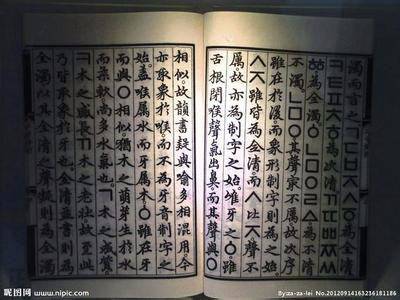 濁而言之。ㄱㄷㅂㅈㅅㆆ爲全清。
ㅋㅌㅍㅊㅎ爲次清。ㄲㄸㅃㅉㅆ
ㆅ爲全濁。ㆁㄴㅁㅇㄹㅿ爲不清
不濁。ㄴㅁㅇ。其聲㝡不厲。故次序
雖在於後。而象形制字則爲之始。
ㅅㅈ雖皆爲全清。而ㅅ比ㅈ。聲不
厲。故亦爲制字之始。唯牙之ㆁ。雖
舌根閉喉聲氣出鼻。而其聲與ㅇ
相似。故韻書疑與喩多相混用。今
亦取象於喉。而不爲牙音制字之
始。盖喉屬水而牙屬木。ㆁ雖在牙
而與ㅇ相似。猶木之萌芽生於水
而柔軟。尚多水氣也。ㄱ木之成質。
ㅋ木之盛長。ㄲ木之老壯。故至此
乃皆取象於牙也。全清並書則爲
全濁。以其全清之聲凝則爲全濁
昵图网 www.nipic.com
By:za-za-lei No:20120914163236181186